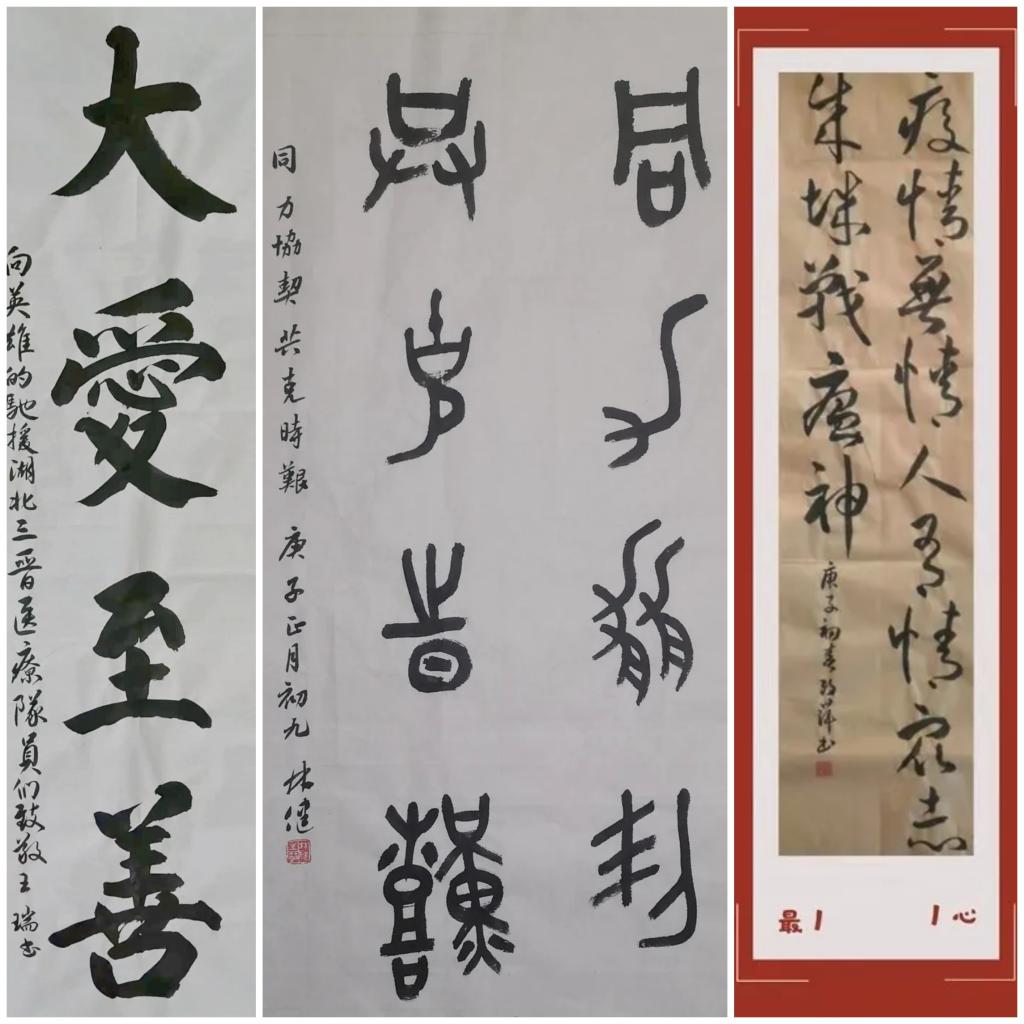 大愛至善
向英雄的馳援湖北三晋医療隊員们致敬 王瑞书
同力協契
共克時艱
同力協契共克時艱 庚子正月初九 林健
疫情無情人有情眾志
成城戰瘟神
庚子初春
最 心